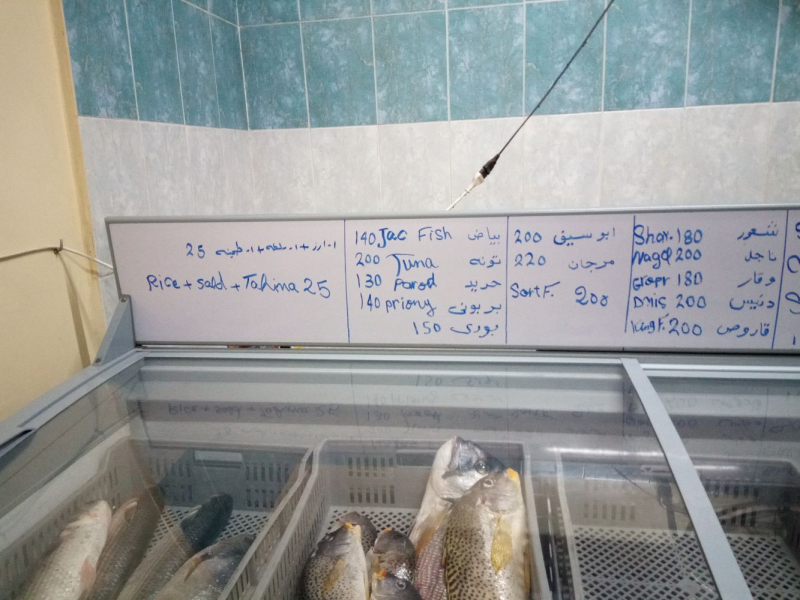 ١. ارز + ١. سلطه + ١. طحينه 25
Rice + sald + Tahina 25
140 Jac Fish بياض
200 Tuna تونه
130 Parod حريد
140 priony بربونى
150 بورى
200 ابو سيف
220 مرجان
SortF. 200
Shor. 180 شعور
Nagel 200 ناجل
Gropr 180 وقار
Dnis 200 دنيس
KingF. 200 قاروص